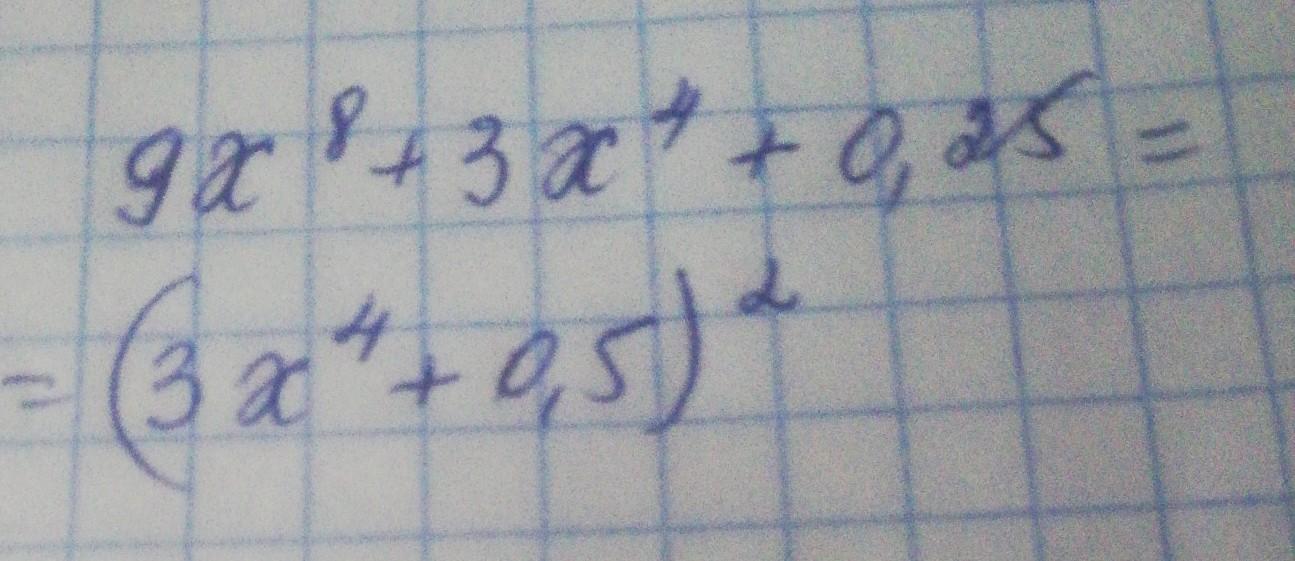 9x⁸ + 3x⁴ + 0,25 =
= (3x⁴ + 0,5)²